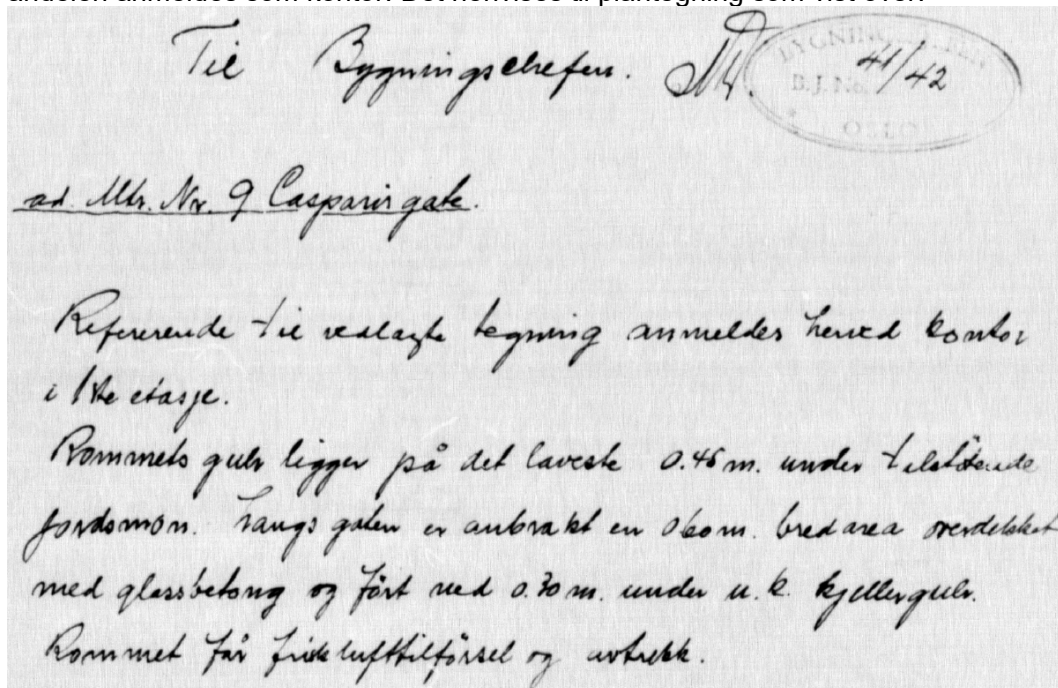 andelen anmeldes som kontor. Det henvises til plantegning som vist over.
Til Bygningschefen.
BYGNINGSCHEFEN
B.J. No. 41/42
OSLO
ad. Mtr. Nr. 9 Casparis gate.
Refererende til vedlagte tegning anmeldes herved kontor
i 1ste etasje.
Rommets gulv ligger på det laveste 0.45 m. under tilstötende
jordsmon. Langs gaten er anbrakt en 0.60 m. bred area overdekket
med glassbetong og fört ned 0.30 m. under u.k. kjellergulv.
Rommet får frisklufttilförsel og avtrekk.